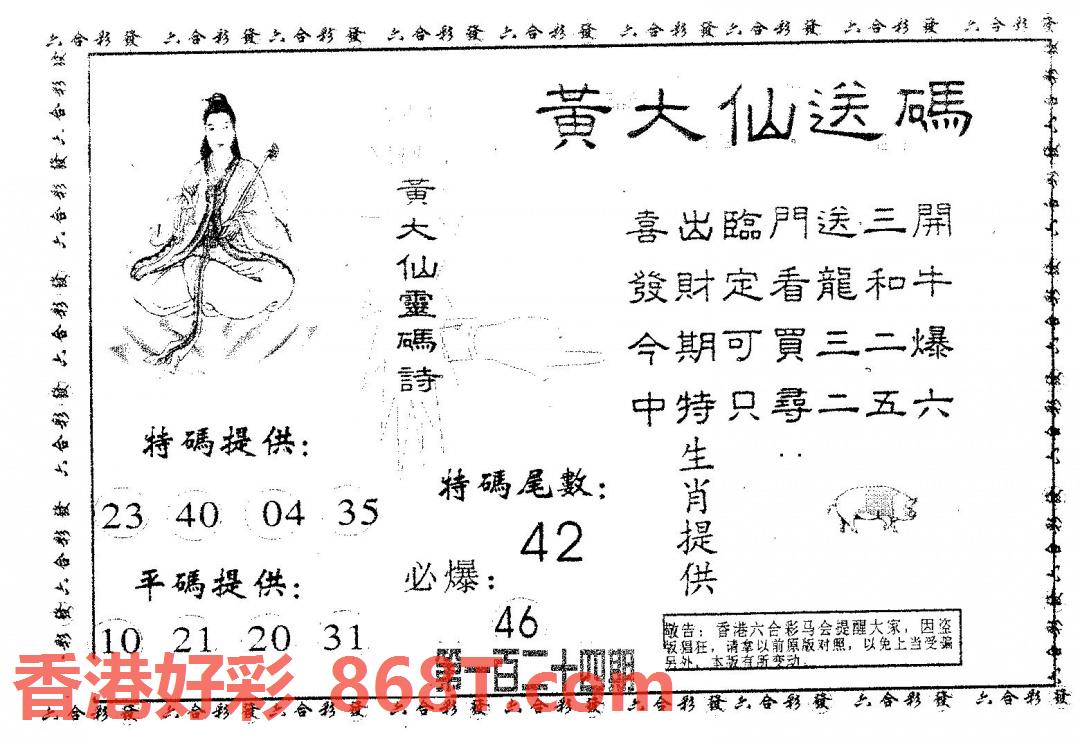 六合彩發 六合彩發六合彩發 六合彩發 六合彩發 六合彩發 六合彩發 六合彩發 六合彩發
黃大仙送碼
黃大仙靈碼詩
喜出臨門送三開
發財定看龍和牛
今期可買三二爆
中特只尋二五六
特碼提供：
23 40 04 35
平碼提供：
10 21 20 31
特碼尾數：
42
必爆：
46
生肖提供：
敬告：香港六合彩马会提醒大家，因盗
版猖狂，请拿以前原版对照，以免上当受骗
另外，本版有所变动。
第一百二十四期
香港好彩 868T.com
六合彩發 六合彩發六合彩發 六合彩發 六合彩發 六合彩發 六合彩發 六合彩發 六合彩發